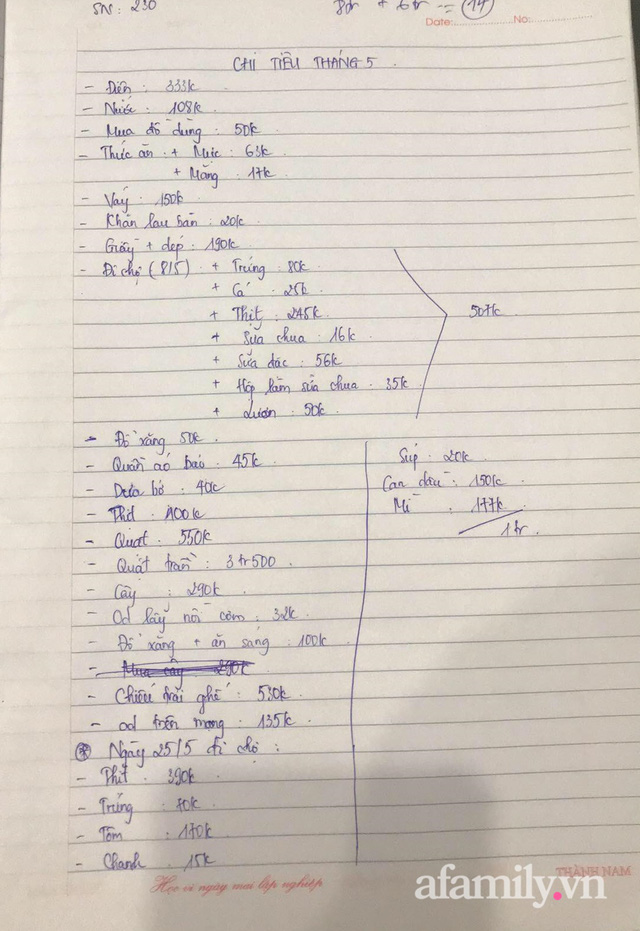 SN: 230
8tr + 6tr = 14
Date: No:
CHI TIÊU THÁNG 5.
- Điện : 333k
- Nước : 108k
- Mua đồ dùng : 50k
- Thức ăn : + Mực : 63k
+ Măng : 17k
- Váy : 150k
- Khăn lau bàn : 20k
- Giấy + dép : 190k
- Đi chợ (8/5) + Trứng : 80k
+ Cá : 25k
+ Thịt : 245k
+ Sữa chua : 16k
+ Sữa đặc : 56k
+ Hộp làm sữa chua . 35k
+ Lươn : 50k
507k
- Đổ xăng 50k.
- Quần áo bảo : 45k
- Dưa bở : 40k
- Thịt . 400k
- Quạt : 550k
- Quạt trần : 3tr500
- Cây : 290k
- Od lấy nồi cơm : 32k
- Đổ xăng + ăn sáng : 100k
- Mua cây : 290k
- Chiếu trải ghế : 530k
- od trên mạng : 135k
* Ngày 25/5 đi chợ :
- Thịt . 390k
- Trứng : 70k
- Tôm : 170k
- Chanh : 15k
Súp : 20k
Can dầu : 150k
Mì : 177k
1tr.
Học vì ngày mai lập nghiệp
THÀNH NAM
afamily.vn